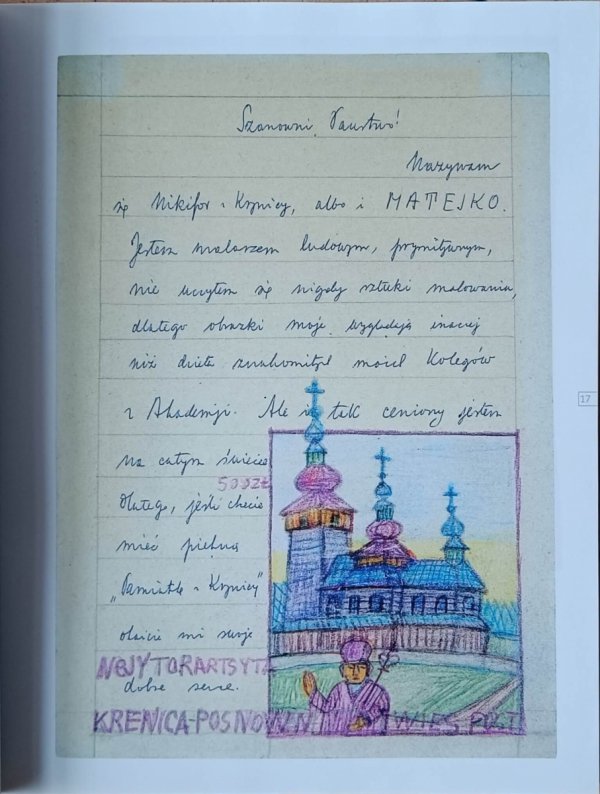 Szanowni Państwo!
Nazywam
się Nikifor z Krynicy, albo i MATEJKO.
Jestem malarzem ludowym, prymitywnym,
nie uczyłem się nigdy sztuki malowania,
dlatego obrazki moje wyglądają inaczej
niż dzieła znakomitych moich Kolegów
z Akademji. Ale i tak ceniony jestem
na całym świecie
500zł
dlatego, jeśli chcecie
mieć piękną
„Pamiątkę z Krynicy”
dajcie mi swoje
NEJYTORARTSYTZ
dobre serce.
KRENICA-POSNOWN WIES POLT
17